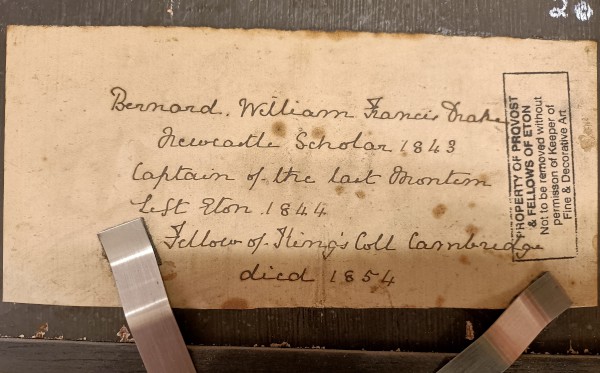 Bernard. William Francis Drake
Newcastle Scholar 1843
Captain of the last Montem
Left Eton. 1844
Fellow of King's Coll Cambridge
died 1854
PROPERTY OF PROVOST
& FELLOWS OF ETON
Not to be removed without
permisson of Keeper of
Fine & Decorative Art